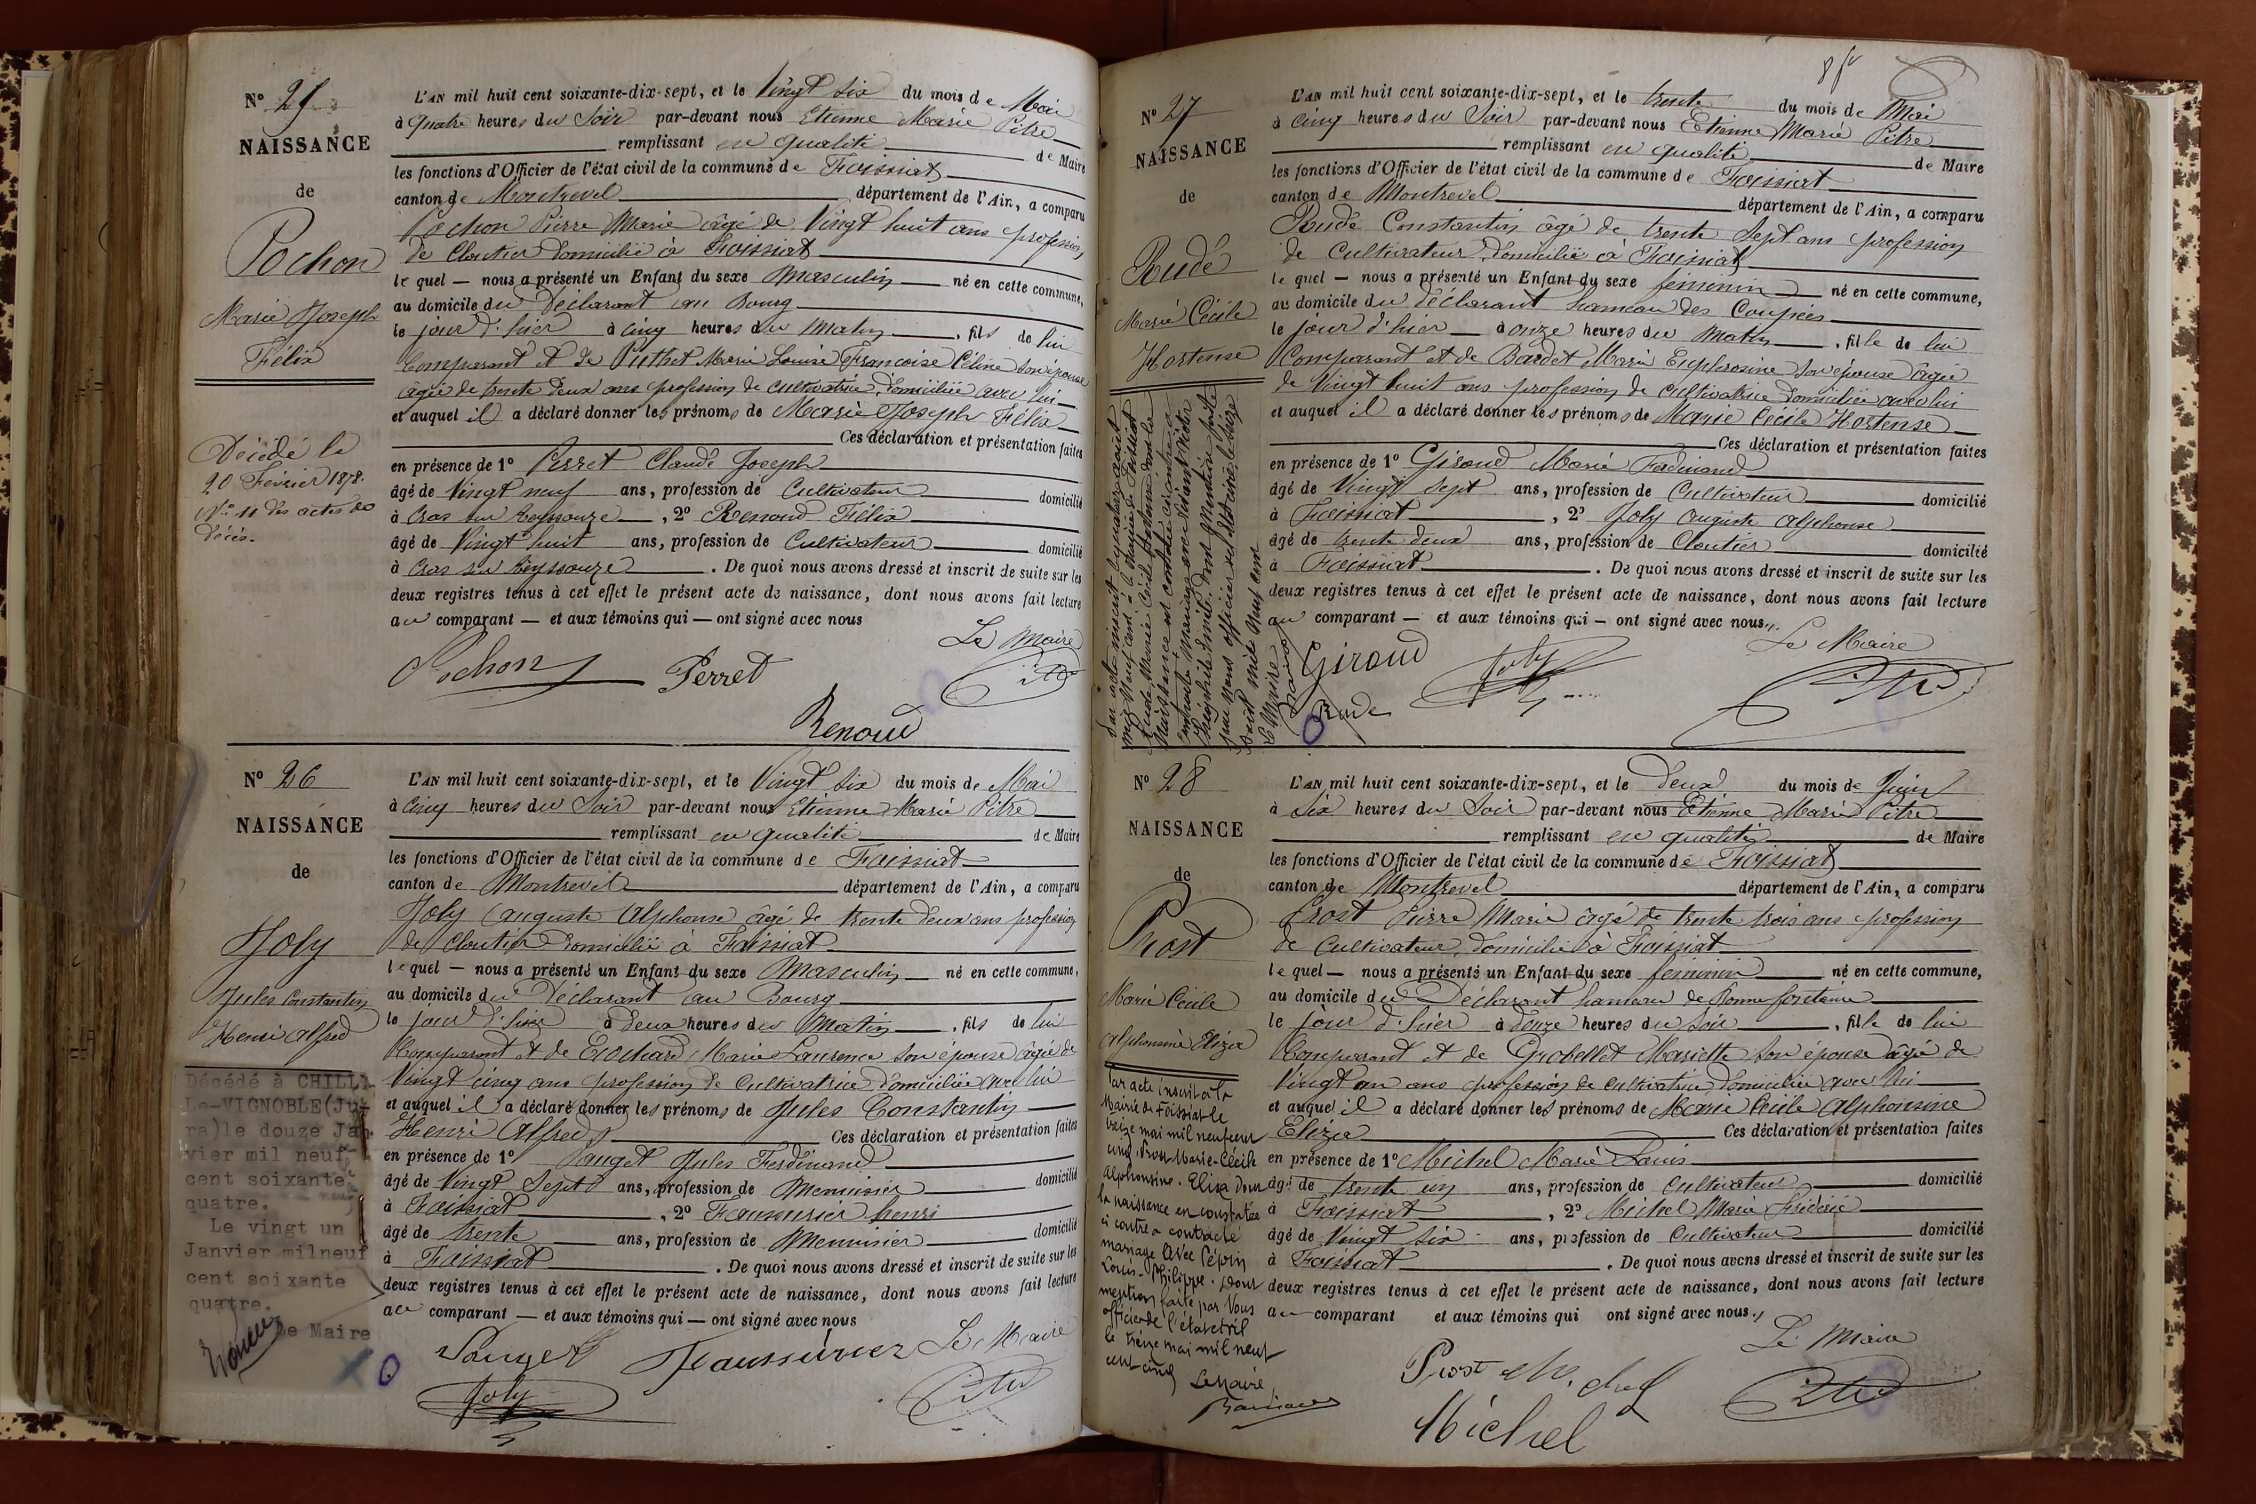 N° 25
NAISSANCE
de
Pochon
Marie Joseph
Félix
Décédé le
20 Février 1878.
N° 11 des actes de
décès.
L'AN mil huit cent soixante-dix-sept, et le Vingt six du mois de Mai
à quatre heures du Soir par-devant nous Etienne Marie Pitre
remplissant en qualité de Maire
les fonctions d'Officier de l'état civil de la commune de Foissiat
canton de Montrevel département de l'Ain, a comparu
Pochon Pierre Marie âgé de Vingt huit ans profession
de Cloutier domicilié à Foissiat
le quel — nous a présenté un Enfant du sexe Masculin né en cette commune,
au domicile du Déclarant au Bourg
le jour d'hier à cinq heures du Matin, fils de lui
Comparant et de Puthet Marie Louise Françoise Céline son épouse
âgée de trente deux ans profession de cultivatrice domiciliée avec lui
et auquel il a déclaré donner les prénoms de Marie Joseph Félix
Ces déclaration et présentation faites
en présence de 1° Perret Claude Joseph
âgé de Vingt neuf ans, profession de Cultivateur domicilié
à Cras sur Reyssouze, 2° Renoud Félix
âgé de Vingt huit ans, profession de Cultivateur domicilié
à Cras sur Reyssouze. De quoi nous avons dressé et inscrit de suite sur les
deux registres tenus à cet effet le présent acte de naissance, dont nous avons fait lecture
au comparant — et aux témoins qui — ont signé avec nous
Le Maire
Pochon Perret Pitre
Renoud
N° 26
NAISSANCE
de
Joly
Jules Constantin
Henri Alfred
Décédé à CHILLY-
Le-VIGNOBLE(Ju-
ra)le douze Jan-
vier mil neuf
cent soixante
quatre.
Le vingt un
Janvier mil neuf
cent soixante
quatre.
Le Maire
L'AN mil huit cent soixante-dix-sept, et le Vingt six du mois de Mai
à Cinq heures du Soir par-devant nous Etienne Marie Pitre
remplissant en qualité de Maire
les fonctions d'Officier de l'état civil de la commune de Foissiat
canton de Montrevel département de l'Ain, a comparu
Joly Auguste Alphonse âgé de trente deux ans profession
de Cloutier domicilié à Foissiat
le quel — nous a présenté un Enfant du sexe Masculin né en cette commune,
au domicile du Déclarant au Bourg
le jour d'hier à deux heures du Matin, fils de lui
Comparant et de Brochard Marie Laurence son épouse âgée de
Vingt cinq ans profession de Cultivatrice domiciliée avec lui
et auquel il a déclaré donner les prénoms de Jules Constantin
Henri Alfred Ces déclaration et présentation faites
en présence de 1° Pauget Jules Ferdinand
âgé de Vingt Sept ans, profession de Menuisier domicilié
à Foissiat, 2° Faussurier henri
âgé de trente ans, profession de Menuisier domicilié
à Foissiat. De quoi nous avons dressé et inscrit de suite sur les
deux registres tenus à cet effet le présent acte de naissance, dont nous avons fait lecture
au comparant — et aux témoins qui — ont signé avec nous
Pauget Faussurier Le Maire
Joly Pitre
N° 27
NAISSANCE
de
Rude
Marie Cécile
Hortense
Par acte inscrit le quatorze août
mil neuf cent à la Mairie de Foissiat
Rude Marie Cécile Hortense dont la
Naissance est constatée ci contre a
contracté mariage avec
Théophile Emile. Dont Mention faite
par nous officier de l'état civil le seize
août mil neuf cent
Le Maire
L'AN mil huit cent soixante-dix-sept, et le trente du mois de Mai
à cinq heures du Soir par-devant nous Etienne Marie Pitre
remplissant en qualité de Maire
les fonctions d'Officier de l'état civil de la commune de Foissiat
canton de Montrevel département de l'Ain, a comparu
Rude Constantin âgé de trente Sept ans profession
de Cultivateur domicilié à Foissiat
le quel — nous a présenté un Enfant du sexe féminin né en cette commune,
au domicile du déclarant hameau des Coupées
le jour d'hier à onze heures du Matin, fille de lui
Comparant et de Bardet Marie Euphrosine son épouse âgée
de Vingt huit ans profession de cultivatrice domiciliée avec lui
et auquel il a déclaré donner les prénoms de Marie Cécile Hortense
Ces déclaration et présentation faites
en présence de 1° Giroud Marie Ferdinand
âgé de Vingt Sept ans, profession de Cultivateur domicilié
à Foissiat, 2° Joly auguste alphonse
âgé de trente deux ans, profession de Cloutier domicilié
à Foissiat. De quoi nous avons dressé et inscrit de suite sur les
deux registres tenus à cet effet le présent acte de naissance, dont nous avons fait lecture
au comparant — et aux témoins qui — ont signé avec nous.
Le Maire
Giroud Joly Pitre
Rude
N° 28
NAISSANCE
de
Prost
Marie Cécile
Alphonsine Eliza
Par acte inscrit à la
Mairie de Foissiat le
treize mai mil neuf cent
cinq, Prost Marie-Cécile
Alphonsine-Eliza dont
la naissance est constatée
ci contre a contracté
mariage avec Pépin
Louis-Philippe. Dont
mention faite par Nous
officier de l'état civil
le treize mai mil neuf
cent cinq
Le Maire,
L'AN mil huit cent soixante-dix-sept, et le deux du mois de Juin
à Six heures du Soir par-devant nous Etienne Marie Pitre
remplissant en qualité de Maire
les fonctions d'Officier de l'état civil de la commune de Foissiat
canton de Montrevel département de l'Ain, a comparu
Prost Pierre Marie âgé de trente trois ans profession
de Cultivateur domicilié à Foissiat
le quel — nous a présenté un Enfant du sexe féminin né en cette commune,
au domicile du Déclarant hameau de Bonne fontaine
le jour d'hier à douze heures du Soir, fille de lui
Comparant et de Grobellet Mariette son épouse âgée de
Vingt un ans profession de cultivatrice domiciliée avec lui
et auquel il a déclaré donner les prénoms de Marie Cécile Alphonsine
Eliza Ces déclaration et présentation faites
en présence de 1° Michel Marie Louis
âgé de trente un ans, profession de Cultivateur domicilié
à Foissiat, 2° Michel Marie Frédéric
âgé de Vingt Six ans, profession de Cultivateur domicilié
à Foissiat. De quoi nous avons dressé et inscrit de suite sur les
deux registres tenus à cet effet le présent acte de naissance, dont nous avons fait lecture
au comparant et aux témoins qui ont signé avec nous.
Le Maire
Prost Michel Pitre
Michel